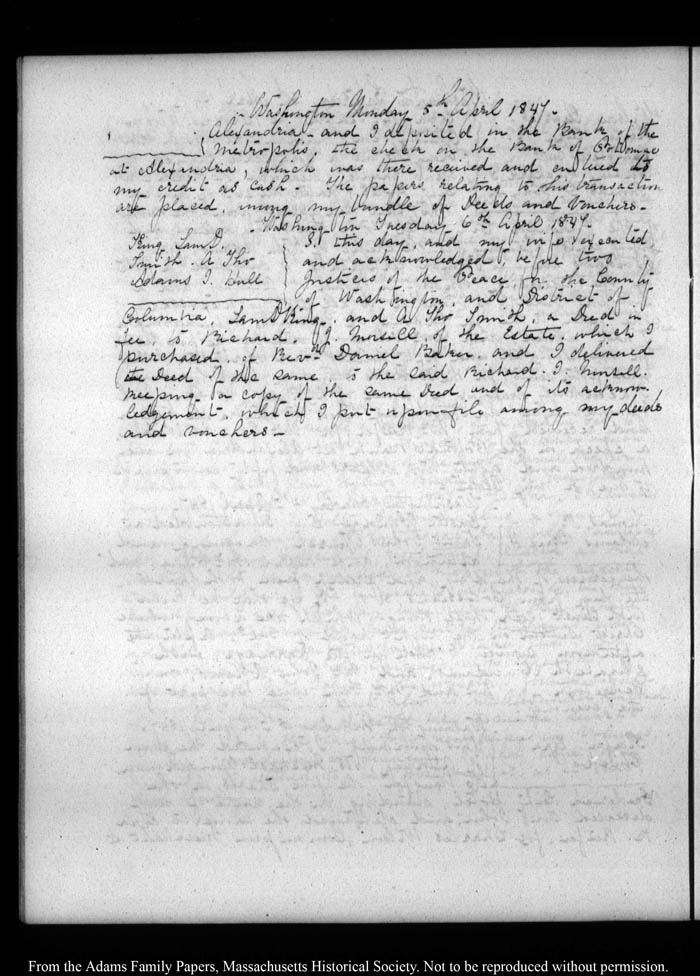 - Washington Monday 5th April 1847.-
Alexandria - and I deposited in the Bank of the
Metropolis, the check on the Bank of Potomac
at Alexandria, which was there received and entered to
my credit as Cash - The papers relating to this transaction
are placed, among my bundle of Deeds and Vouchers -
- Washington Tuesday 6th April 1847.-
King Saml D.
Smith. A Tho
Adams I. Hull
this day, and my wife executed
and acknowledged before two
Justices of the Peace for the County
of Washington, and District of
Columbia, Saml D King, and A Tho Smith, a Deed in
fee, to Richard. J. of the Estate, which I
purchased, of Revd Daniel Baker, and I delivered
the Deed of the same to the said Richard. J.
keeping a copy of the same Deed and of its acknow-
ledgement, which I put upon file among my deeds
and vouchers -
From the Adams Family Papers, Massachusetts Historical Society. Not to be reproduced without permission.